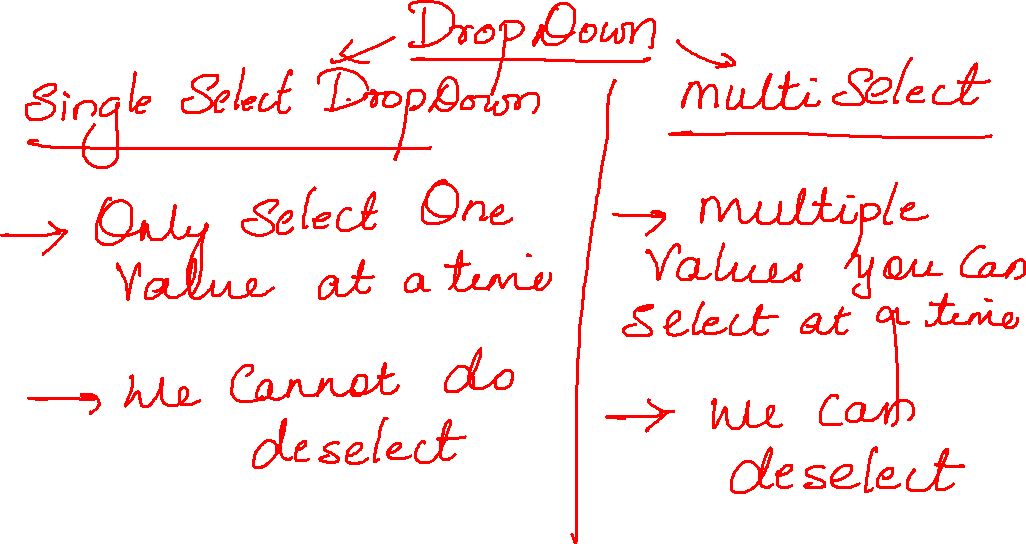 DropDown
Single Select DropDown
→ Only Select One
Value at a time
→ we Cannot do
deselect
multi Select
→ multiple
Values you Can
Select at a time
→ we can
deselect